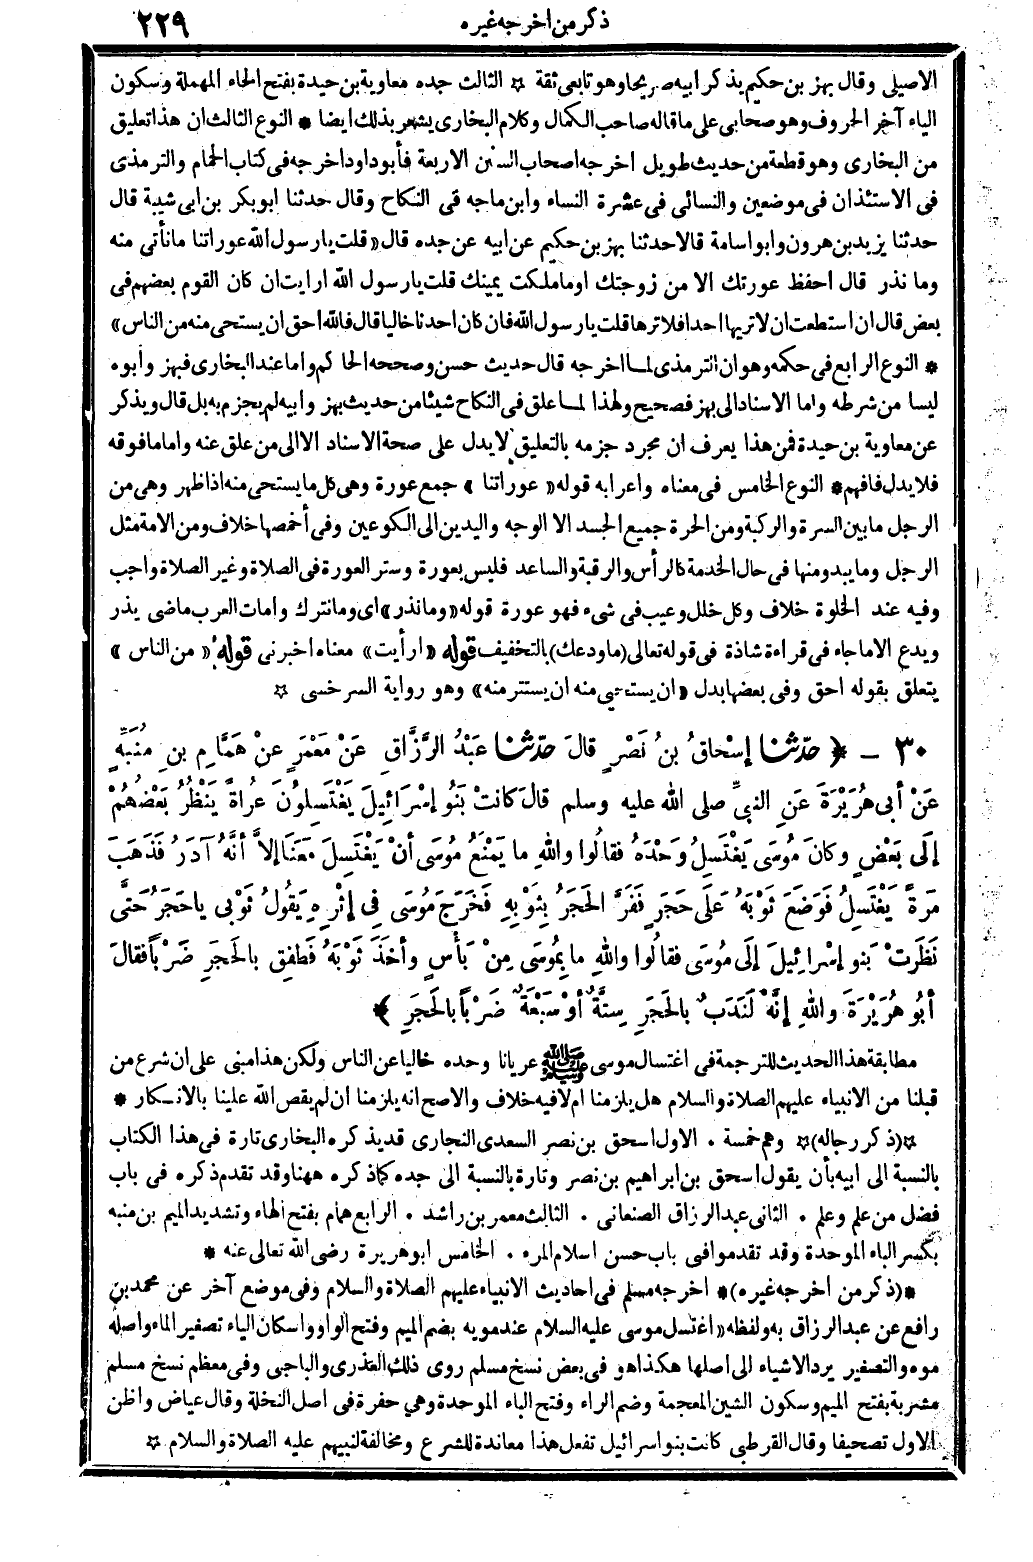 ذكر من اخرجه غيره ٢٢٩
الاصيلى وقال بهز بن حكيم يذكر ابيه صريحا وهو تابعى ثقة ☆ الثالث جده معاوية بن حيدة بفتح الحاء المهملة وسكون
الياء آخر الحروف وهو صحابى على ما قاله صاحب الكمال وكلام البخارى يشعر بذلك ايضا * النوع الثالث ان هذا تعليق
من البخارى وهو قطعة من حديث طويل اخرجه اصحاب السنن الاربعة فأبو داود اخرجه فى كتاب الحمام والترمذى
فى الاستئذان فى موضعين والنسائى فى عشرة النساء وابن ماجه فى النكاح وقال حدثنا ابو بكر بن ابى شيبة قال
حدثنا يزيد بن هرون وابو اسامة قالا حدثنا بهز بن حكيم عن ابيه عن جده قال «قلت يا رسول الله عوراتنا ما نأتى منه
وما نذر قال احفظ عورتك الا من زوجتك او ما ملكت يمينك قلت يا رسول الله ارايت ان كان القوم بعضهم فى
بعض قال ان استطعت ان لا تريها احدا فلا ترها قلت يا رسول الله فان كان احدنا خاليا قال فالله احق ان يستحى منه من الناس»
* النوع الرابع فى حكمه وهو ان الترمذى لما اخرجه قال حديث حسن وصححه الحاكم واما عند البخارى فبهز وأبوه
ليسا من شرطه واما الاسناد الى بهز فصحيح ولهذا لما علق فى النكاح شيئا من حديث بهز وابيه لم يجزم به بل قال ويذكر
عن معاوية بن حيدة فمن هذا يعرف ان مجرد جزمه بالتعليق لا يدل على صحة الاسناد الا الى من علق عنه واما ما فوقه
فلا يدل فافهم * النوع الخامس فى معناه واعرابه قوله «عوراتنا» جمع عورة وهى كل ما يستحى منه اذا ظهر وهى من
الرجل ما بين السرة والركبة ومن الحرة جميع الجسد الا الوجه واليدين الى الكوعين وفى أخمصها خلاف ومن الامة مثل
الرجل وما يبدو منها فى حال الخدمة كالرأس والرقبة والساعد فليس بعورة وستر العورة فى الصلاة وغير الصلاة واجب
وفيه عند الخلوة خلاف وكل خلل وعيب فى شىء فهو عورة قوله «وما نذر» اى وما نترك وامات العرب ماضى يذر
ويدع الا ما جاء فى قراءة شاذة فى قوله تعالى (ما ودعك) بالتخفيف قوله «ارأيت» معناه اخبرنى قوله «من الناس»
يتعلق بقوله احق وفى بعضها بدل «ان يستحيى منه ان يستتر منه» وهو رواية السرخسى ☆
٣٠ ـ ﴿ حدّثنا إسْحاقُ بنُ نَصْرٍ قالَ حدّثنا عَبْدُ الرَّزَّاقِ عَنْ مَعْمَرٍ عنْ هَمَّامِ بنِ مُنَبِّهٍ
عَنْ أبى هُرَيْرَةَ عَنِ النبيِّ صلى الله عليه وسلم قالَ كانَتْ بَنُو إسْرَائِيلَ يَغْتَسِلُونَ عُراةً يَنْظُرُ بَعْضُهُمْ
إلَى بَعْضٍ وكانَ مُوسَى يَغْتَسِلُ وَحْدَهُ فقالُوا واللهِ ما يَمْنَعُ مُوسَى أنْ يَغْتَسِلَ مَعَنَا إلاَّ أنَّهُ آدَرُ فَذَهَبَ
مَرةً يَغْتَسِلُ فَوَضَعَ ثَوْبَهُ عَلَى حَجَرٍ فَفَرَّ الْحَجَرُ بِثَوْبِهِ فَخَرَجَ مُوسَى فِى إثْرِهِ يَقُولُ ثَوْبى يا حَجَرُ حَتَّى
نَظَرَتْ بَنو إسْرائِيلَ إلَى مُوسَى فقالُوا واللهِ ما بِمُوسَى مِنْ بَأْسٍ وأخَذَ ثَوْبَهُ فَطَفِقَ بالْحَجَرِ ضَرْباً فقالَ
أبُو هُرَيْرَةَ واللهِ إنَّهُ لَنَدَبٌ بالحَجَرِ سِتَّةٌ أوْ سَبْعَةٌ ضَرْباً بالْحَجَرِ ﴾
مطابقة هذا الحديث للترجمة فى اغتسال موسى ﷺ عريانا وحده خاليا عن الناس ولكن هذا مبنى على ان شرع من
قبلنا من الانبياء عليهم الصلاة والسلام هل يلزمنا ام لا فيه خلاف والاصح انه يلزمنا ان لم يقص الله علينا بالانكار *
☆(ذكر رجاله)☆ وهم خمسة . الاول اسحق بن نصر السعدى النجارى قد يذكره البخارى تارة فى هذا الكتاب
بالنسبة الى ابيه بأن يقول اسحق بن ابراهيم بن نصر وتارة بالنسبة الى جده كما ذكره ههنا وقد تقدم ذكره فى باب
فضل من علم وعلم . الثانى عبد الرزاق الصنعانى . الثالث معمر بن راشد . الرابع همام بفتح الهاء وتشديد الميم بن منبه
بكسر الباء الموحدة وقد تقدموا فى باب حسن اسلام المرء . الخامس ابو هريرة رضى الله تعالى عنه *
*(ذكر من أخرجه غيره)* اخرجه مسلم فى احاديث الانبياء عليهم الصلاة والسلام وفى موضع آخر عن محمد بن
رافع عن عبد الرزاق به ولفظه «اغتسل موسى عليه السلام عند مويه بضم الميم وفتح الواو واسكان الياء تصغير الماء واصله
موه والتصغير يرد الاشياء الى اصلها هكذا هو فى بعض نسخ مسلم روى ذلك العذرى والباجى وفى معظم نسخ مسلم
مشربة بفتح الميم وسكون الشين المعجمة وضم الراء وفتح الباء الموحدة وهي حفرة فى اصل النخلة وقال عياض واظن
الاول تصحيفا وقال القرطبى كانت بنو اسرائيل تفعل هذا معاندة للشرع ومخالفة لنبيهم عليه الصلاة والسلام ☆